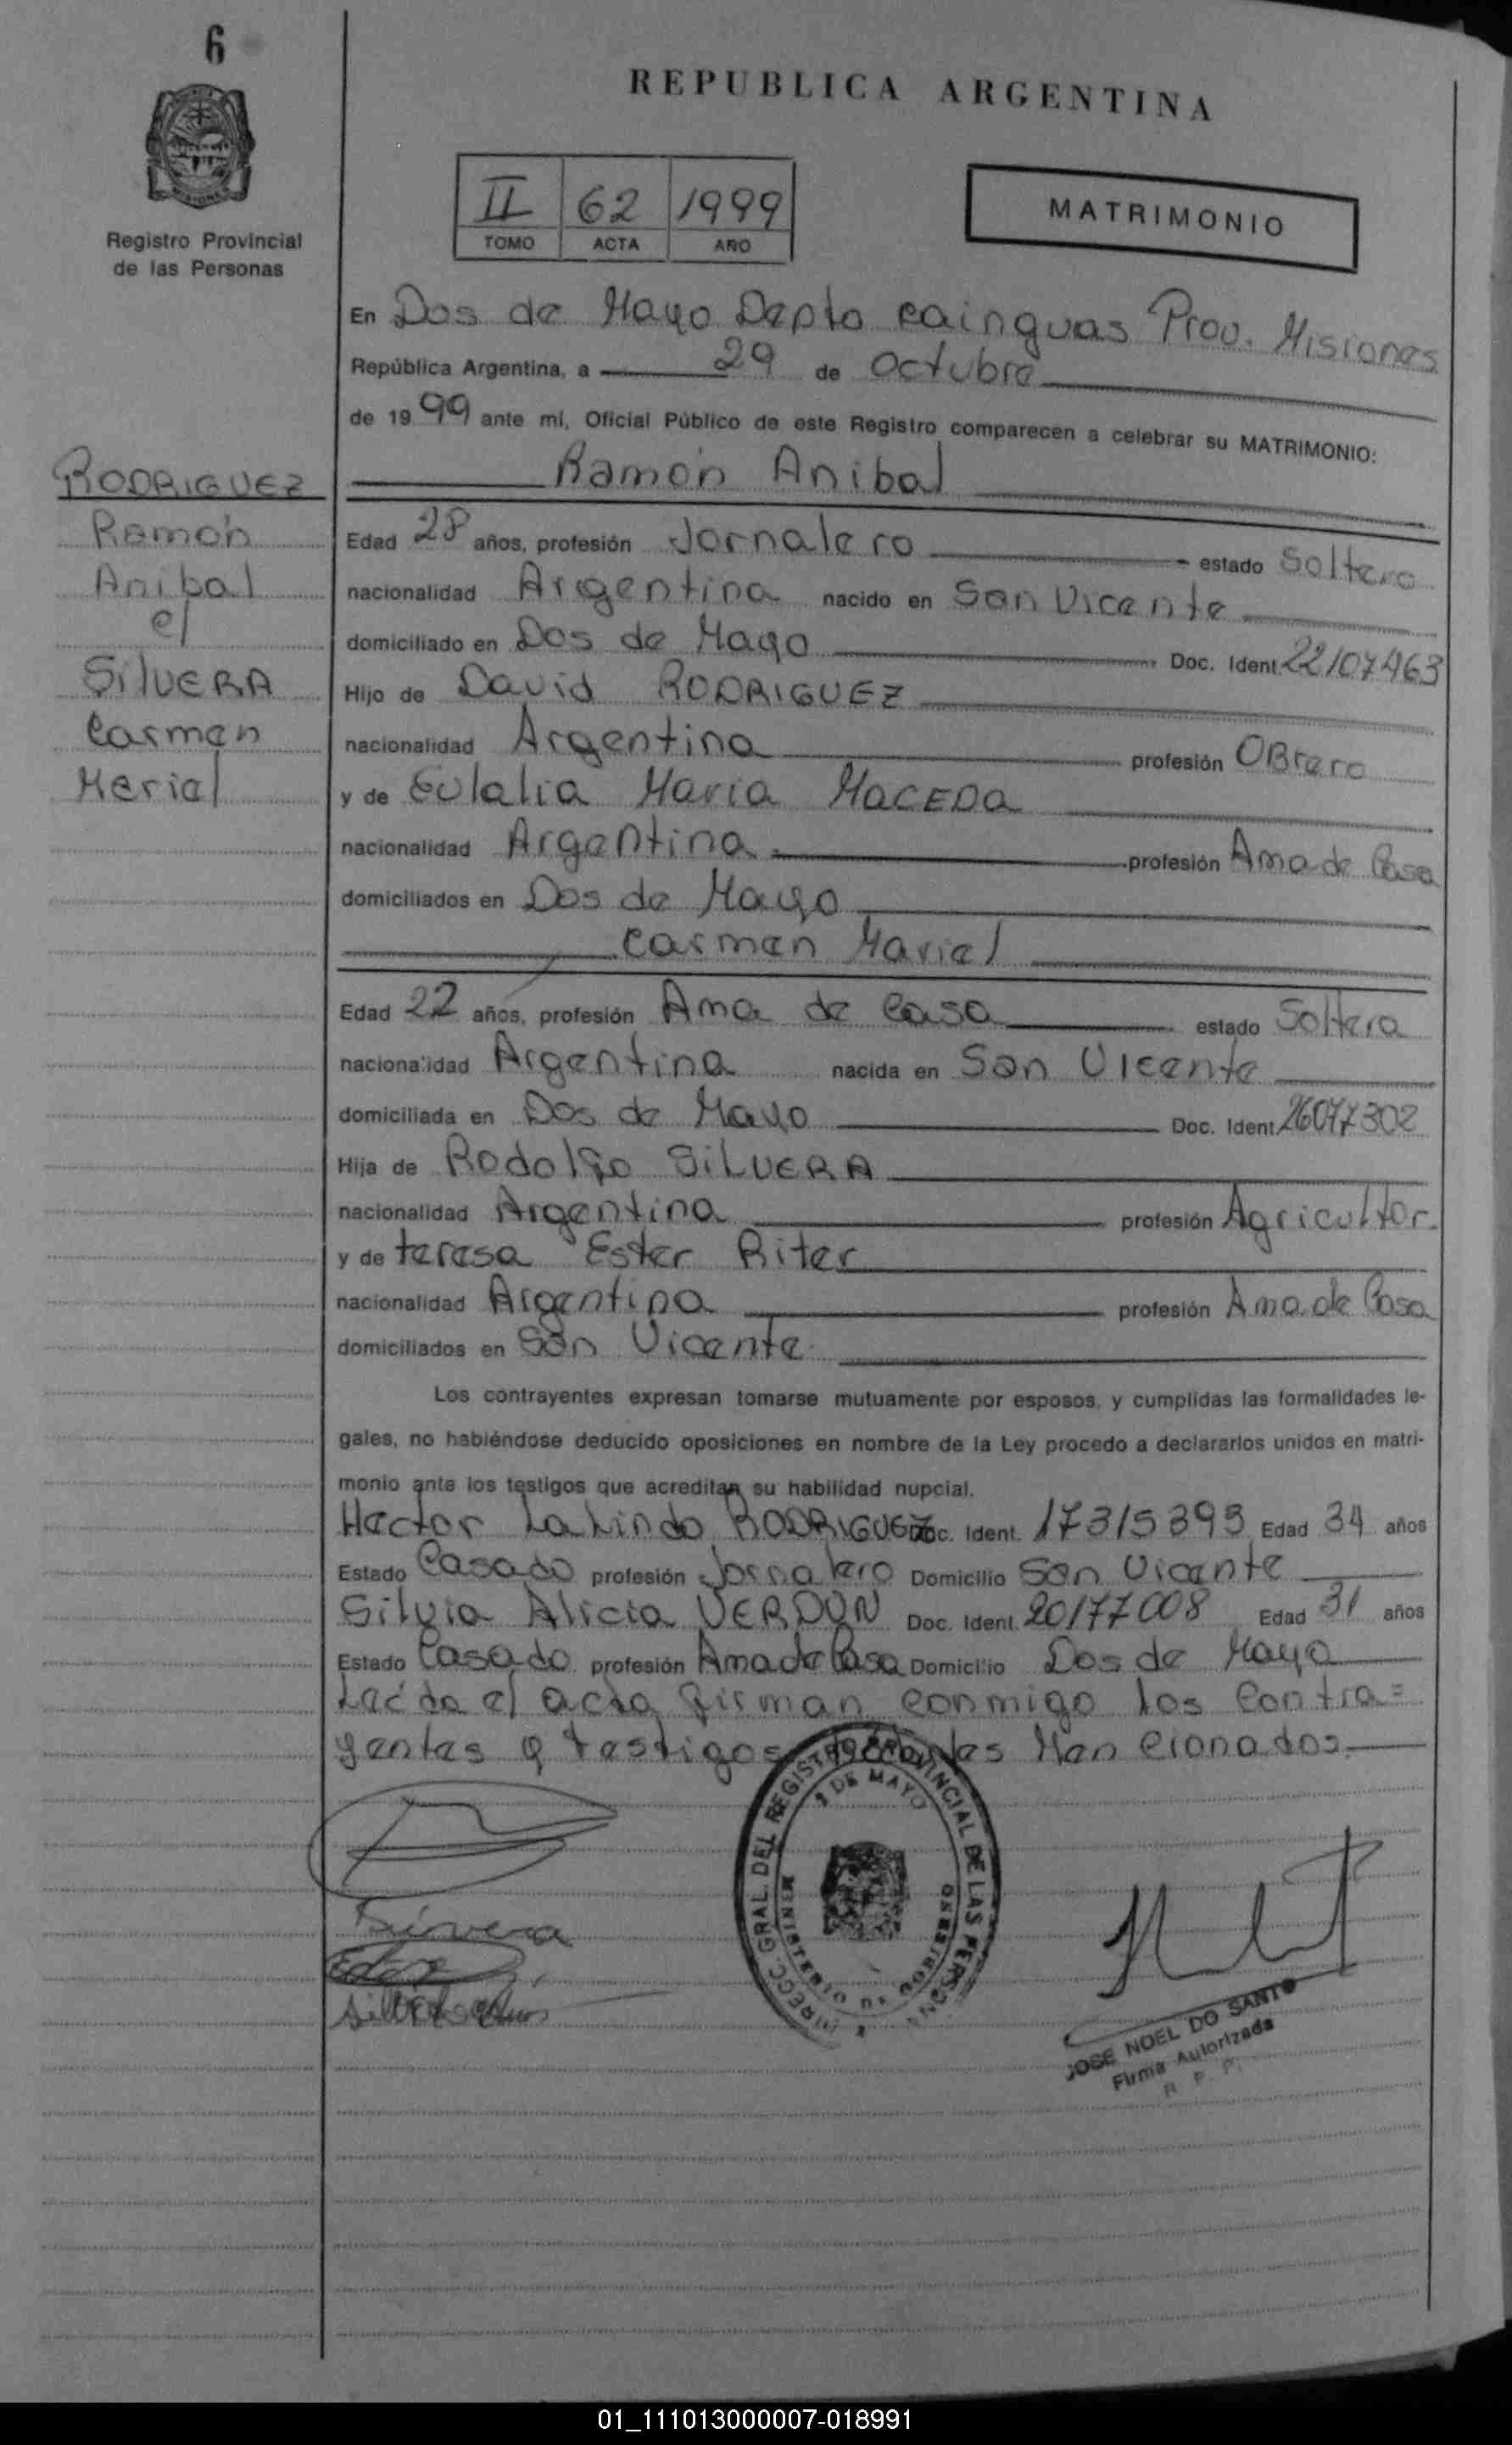 6
REPUBLICA ARGENTINA
Registro Provincial
de las Personas
II 62 1999
TOMO ACTA AÑO
MATRIMONIO
En Dos de Mayo Depto cainguas Prov. Misiones
República Argentina, a 29 de Octubre
de 1999 ante mi, Oficial Público de este Registro comparecen a celebrar su MATRIMONIO:
RODRIGUEZ
Ramón
Anibal
c/
SilVERA
Carmen
Meriel
Ramón Anibal
Edad 28 años, profesión Jornalero estado Soltero
nacionalidad Argentina nacido en San Vicente
domiciliado en Dos de Mayo Doc. Ident. 22107463
Hijo de David RODRIGUEZ
nacionalidad Argentina profesión OBrero
y de Eulalia Maria MACEDA
nacionalidad Argentina profesión Ama de Casa
domiciliados en Dos de Mayo
Carmen Mariel
Edad 22 años, profesión Ama de Casa estado Soltera
nacionalidad Argentina nacida en San Vicente
domiciliada en Dos de Mayo Doc. Ident. 26077302
Hija de Rodolfo SiLVERA
nacionalidad Argentina profesión Agricultor
y de teresa Ester Riter
nacionalidad Argentina profesión Ama de Casa
domiciliados en San Vicente
Los contrayentes expresan tomarse mutuamente por esposos, y cumplidas las formalidades le-
gales, no habiéndose deducido oposiciones en nombre de la Ley procedo a declararlos unidos en matri-
monio ante los testigos que acreditan su habilidad nupcial.
Hector RODRIGUEZ Doc. Ident. 17315393 Edad 34 años
Estado Casado profesión Jornalero Domicilio San Vicente
Silvia Alicia VERDUN Doc. Ident. 20177008 Edad 31 años
Estado Casado profesión Ama de Casa Domicilio Dos de Mayo
Leída el acta firman conmigo los Contra=
yentes y testigos Mencionados.
DIRECC. GRAL. DEL REGISTRO PROVINCIAL DE LAS PERSONAS
2 DE MAYO
MINISTERIO DE GOBIERNO
JOSE NOEL DO SANTO
Firma Autorizada
R. P. P.
01_111013000007-018991